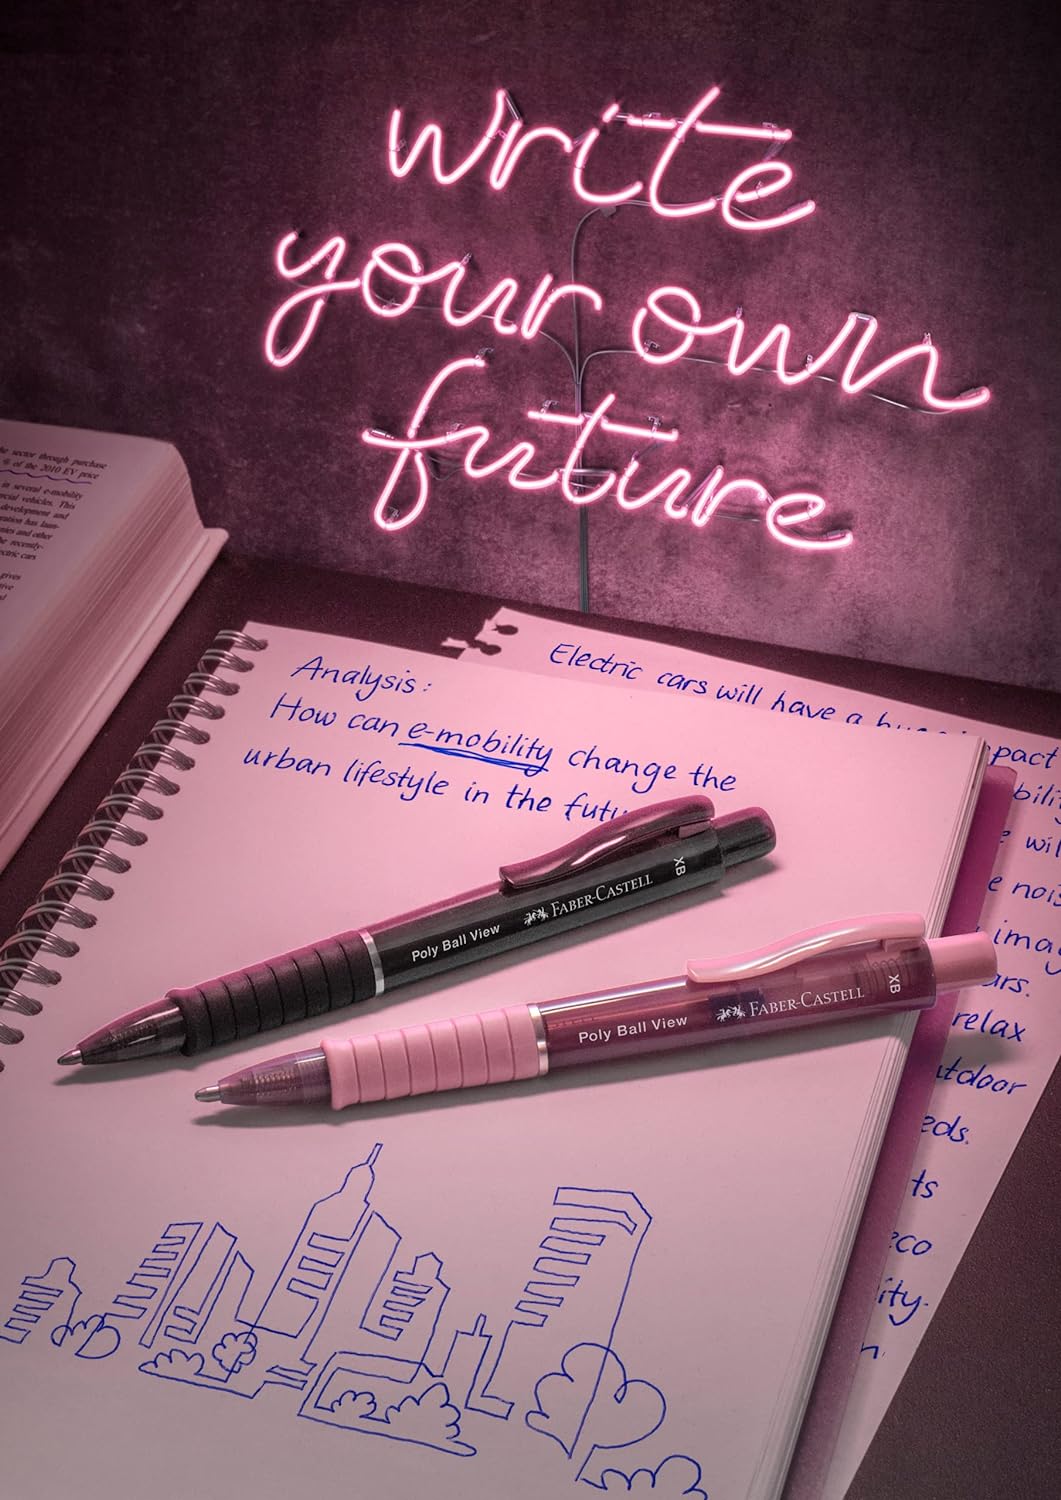 write
your own
future
he sector through purchase
% of the 2010 EV price
in several e-mobility
rcial vehicles. This
development and
ration has laun-
nies and other
he recently-
ectric cars
gives
tive
Analysis:
How can e-mobility change the
urban lifestyle in the futu
Electric cars will have a huge impact
bility
e will
e nois
imag
ars.
relax
utdoor
eds.
ts
eco
ility.
n
XB
FABER-CASTELL
Poly Ball View
XB
FABER-CASTELL
Poly Ball View